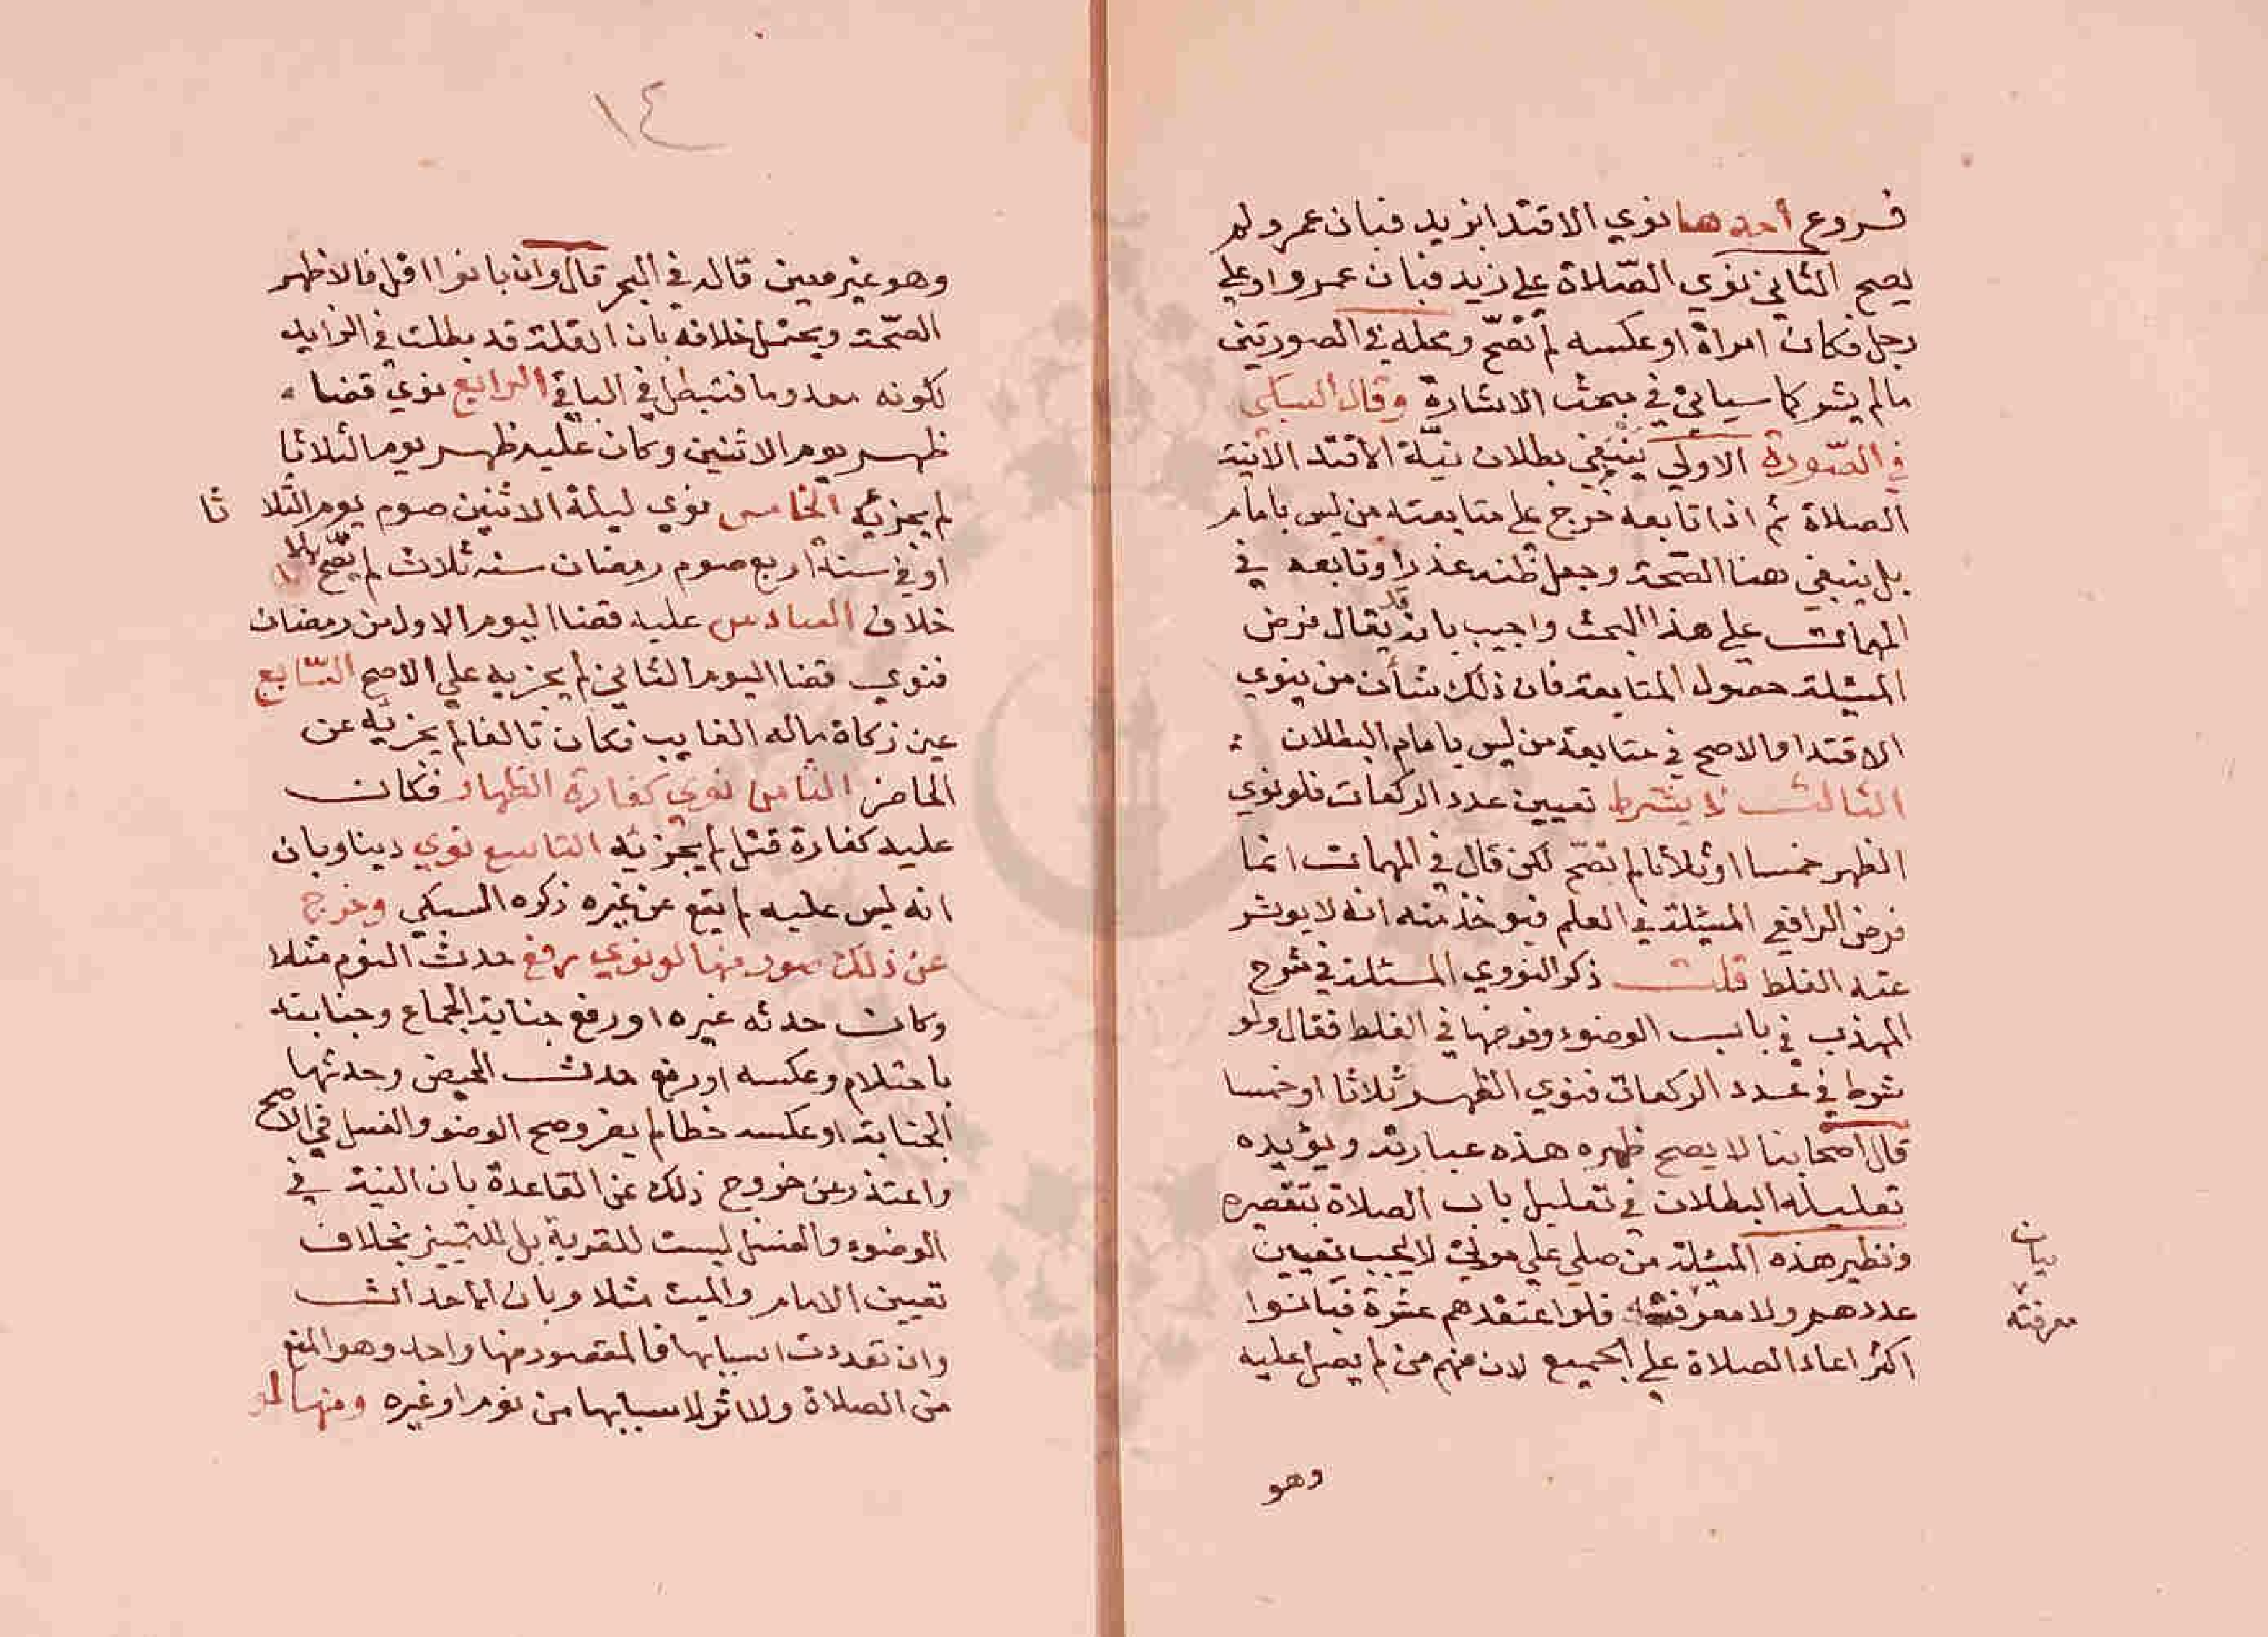 فروع أحدها نوي الاقتدا بزيد فبان عمرو لم
يصح الثاني نوي الصّلاة علي زيد فبان عمروا وعلي
رجل فكان امراة او عكسه لم تصحّ ومحله في الصورتين
مالم يشر كما سياتي في مبحث الاشارة وقال السبكي
في الصّورة الاولي ينبغي بطلان نيّة الاقتدا لانية
الصلاة ثم اذا تابعه خرج علي متابعته من ليس بامام
بل ينبغي هنا الصحة وجعل ظنه عذرا وتابعه في
المهمات علي هذا البحث واجيب بانه قد يقال فرض
المسئلة حصول المتابعة فان ذلك شأن من ينوي
الاقتدا والاصح في متابعة من ليس بامام البطلان
الثالث لا يشترط تعيين عدد الركعات فلو نوي
الظهر خمسا او ثلاثا لم تصحّ لكن قال في المهمات انما
فرض الرافعي المسئلة في العلم فيوخذ منه انه لا يوثر
عنه الغلط قلت ذكر النووي المسئلة في شرح
المهذب في باب الوضوء وفرضها في الغلط فقال ولو
شرط في عدد الركعات فنوي الظهر ثلاثا او خمسا
قال اصحابنا لا يصح ظهره هذه عبارته ويؤيده
تعليله البطلان في تعليل باب الصلاة بتقصيره
ونظير هذه المسئلة من صلي علي موتي لا يجب تعيين
عددهم ولا معرفته فلو اعتقدهم عشرة فبانوا
اكثر اعاد الصلاة علي الجميع لان منهم من لم يصل عليه
وهو
بيان
معرفته
١٤
وهو غير معين قاله في البحر قال وان بانوا اقل فالاظهر
الصّحة ويحتمل خلافه بان القلة قد بطلت في الزايد
لكونه معدوما فتبطل في الباقي الرابع نوي قضا
ظهر يوم الاثنين وكان عليه ظهر يوم الثلاثا
لم يجزئه الخامس نوي ليلة الاثنين صوم يوم الثلاثا
او في سنة اربع صوم رمضان سنة ثلاث لم يصح بلا
خلاف السادس عليه قضا اليوم الاول من رمضان
فنوي قضا اليوم الثاني لم يجزيه علي الاصح السّابع
عين زكاة ماله الغايب فكان تالفا لم يجزيه عن
الحاضر الثامن نوي كفارة الظهار فكان
عليه كفارة قتل لم يجزئه التاسع نوي دينا وبان
انه ليس عليه لم يقع عن غيره ذكره السبكي وخرج
عن ذلك صور منها لو نوي رفع حدث النوم مثلا
وكان حدثه غيره او رفع جنابة الجماع وجنابته
باحتلام وعكسه او رفع حدث الحيض وحدثها
الجنابة او عكسه خطا لم يضر وصح الوضو والغسل في الاصح
واعتذر عن خروج ذلك عن القاعدة بان النية في
الوضوء والغسل ليست للقربة بل للتمييز بخلاف
تعيين الامام والميت مثلا وبان الاحداث
وان تعددت اسبابها فالمقصود منها واحد وهو المنع
من الصلاة ولا اثر لاسبابها من نوم او غيره ومنها لو